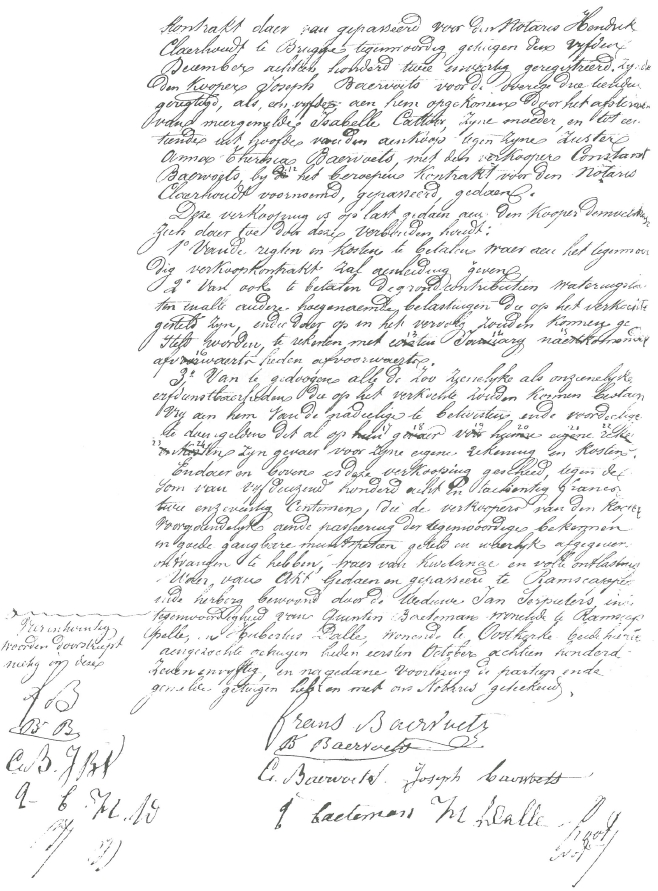 Kontrakt daer van gepasseerd voor den Notaris Hendrik
Claerhoudt te Brugge tegenwoordig getuigen den vyfden
December achttien honderd twee en veertig geregistreerd. Zynde
den Kooper Joseph Baervoets voor de overige twee tienden
geregtigd, als, een vyfde aen hem opgekomen door het afsterven
van meergemelde Isabelle Cattoor, zyne moeder, en tot een
tiende uit hoofde van den aenkoop tegen zyne zuster
Anna Theresia Baervoets, met den verkooper Constant
Baervoets, by het beroepen Kontrakt voor den Notaris
Claerhoudt voornoemd, gepasseerd, gedaen.
Deze verkooping is op last gedaen aen den Kooper denwelken
zich daer toe door deze verbinden houdt:
1° Van de regten en kosten te betalen waer aen het tegenwoor
dig verkoopkontrakt zal aenleiding geven
2° Van ook te betalen de grondcontributien wateringslas
ten en alle andere hoegenaemde belastingen die op het verkochte
gesteld zyn, ende daer op in het vervolg zouden komen ge
steld worden, te rekenen met January naestkomende
heden af voorwaerts.
3° Van te gedoogen alle de zoo zienelyke als onzienelyke
erfdienstbaerheden die op het verkochte zouden komen bestaen
vry aen hem van de nadeelige te betwisten ende voordeelige
te doen gelden dit al op gevaer voor eigene
zyn gevaer voor zyne eigene rekening en kosten.
Endaer en boven is deze verkooping geschied, tegen de
som van vyfduizend honderd acht en tachentig francs
twee en zeventig Centimen, die de verkoopers van den Kooper
voorgaendelyk aen de passeering der tegenwoordige bekennen
in goede gangbare muntspecien geteld en waerlyk afgegeven
ontvangen te hebben, waer van kwitancie en volle ontlasting.
Waer van Akt Gedaen en gepasseerd te Ramscappelle
in de herberg bewoond door de Weduwe Jan Serpieters in
tegenwoordigheid van Quintin Baeteman wonende te Ramsca
pelle, en Hubertus Dalle, wonende te Oostkerke beide hiertoe
aengezochte getuigen heden eersten October achttien honderd
zeven en vyftig, en na gedane voorlezing de partyen ende
gemelde getuigen hebben met ons Notaris geteekend.
woorden doorstreept
nietig op deze
J B
B B
C. B. J B
q B. H. D
Frans Baervoets
B Baervoets
C. Baervoets Joseph Baervoets
q baeteman H Dalle